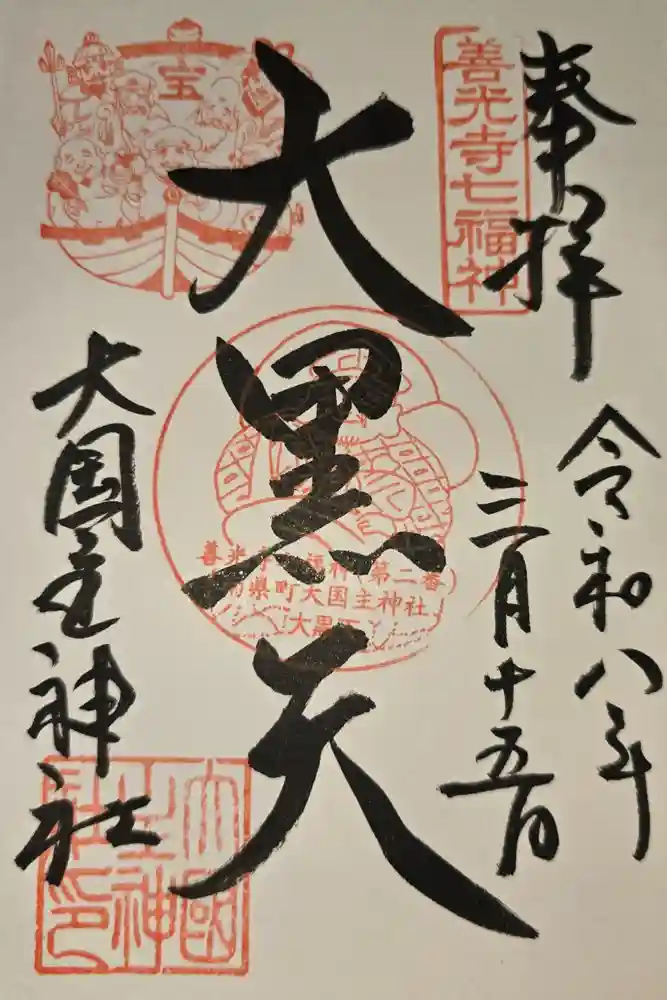 奉拝
令和八年
三月十五日
善光寺七福神
宝
大黒天
善光寺七福神(第二番)
南県町大国主神社
大黒天
大国主神社
大國
主神
社印